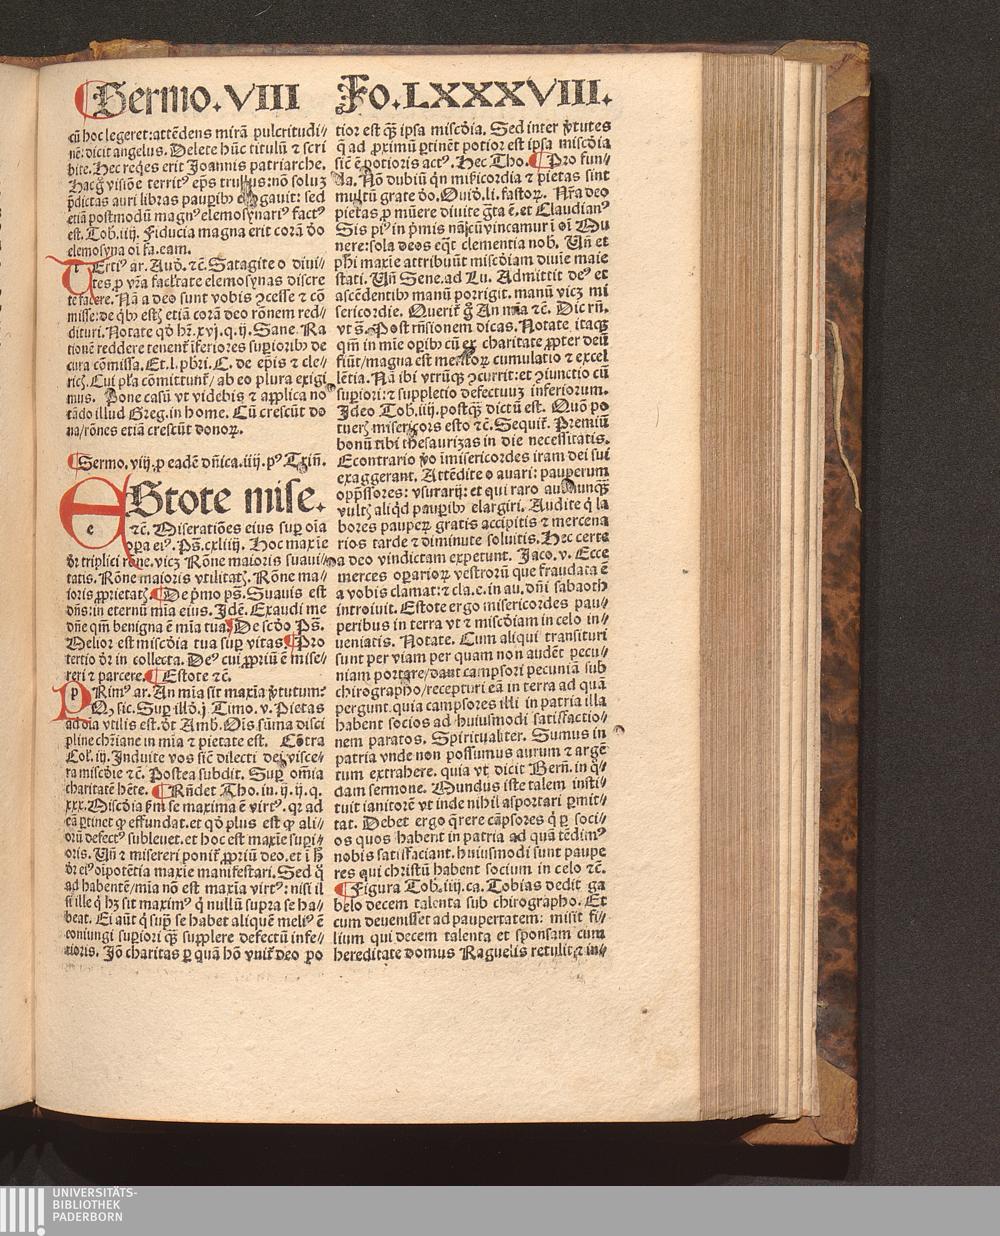 Sermo. VIII Fo. LXXXVIII.
cū hoc legeret: attēdens mirā pulcritudi⸗
nē: dicit angelus. Delete hūc titulū ⁊ scri
bite. Hec reqes erit Joannis patriarche.
Hac gͦ visiōe territꝰ ep̄s: nō soluꝫ
p̄dictas auri libras paupibꝰ: sed
etiā postmodū magnꝰ elemosynariꝰ factꝰ
est. Tob. iiij. Fiducia magna erit corā deo
elemosyna oī fa. eam.
TErtiꝰ ar. Aud. ⁊c. Satagite o diui⸗
tes, ꝓ vr̄a facl̄tate elemosynas discre
te facere. Nā a deo sunt vobis ꝯcesse ⁊ cō
misse: de qͥbꝰ estꝫ etiā corā deo rōnem red⸗
dituri. Notate qd hr̄. xvj. q. ij. Sane. Ra
tionē reddere tenent̄ īferiores supioribꝰ de
cura cōmissa. Et. l. pbri. C. de ep̄is ⁊ cle⸗
ricꝭ. Cui pl̄a cōmittunt̄ / ab eo plura exigi
mus. Pone casū vt videbis ⁊ applica no
tādo illud Greg. in home. Cū crescūt do
na / rōnes etiā crescūt donoꝝ.
Sermo. viij. ꝓ eadē dn̄ica. iiij. pꝰ Trin̄.
EStote mise.
e ⁊c. Miseratiōes eius sup oīa
opa eiꝰ. Ps. cxliiij. Hoc maxīe
dr̄ triplici rōne. vicꝫ Rōne maioris suaui⸗
tatis. Rōne maioris vtilitatꝭ. Rōne ma⸗
ioris ꝓprietatꝭ. De pͥmo ps. Suauis est
dn̄s: in eternū mīa eius. Idē. Exaudi me
dn̄e qm̄ benigna ē mīa tua. De scd̄o Ps.
Melior est miscd̄ia tua sup vitas. Pro
tertio dr̄ in collecta. Deꝰ cui ꝓpriū ē mise⸗
reri ⁊ parcere. Estote ⁊c.
PRimꝰ ar. An mīa sit maxīa v̓tutum.
Qꝫ sic. Sup illd̓. j Timo. v. Pietas
ad oīa vtilis est. dt̄ Amb. Oīs sūma disci
pline chr̄iane in mīa ⁊ pietate est. Cōtra
Col̓. iij. Induite vos sic̄ dilecti dei visce⸗
ra miscd̄ie ⁊c. Postea subdit. Sup om̄ia
charitatē hēte. Rn̄det Tho. in. ij. ij. q.
xxx. Miscd̄ia pm se maxima ē virtꝰ. qr ad
eā ptinet ꝙ effundat. et qd̓ plus est ꝙ ali⸗
orū defectꝰ subleuet. et hoc est maxīe supi⸗
oris. Un̄ ⁊ misereri ponit̄ ꝓpriū deo. et ī hͦ
dr̄ eiꝰ oīpotētia maxīe manifestari. Sed qͦ
ad habentē / mīa nō est maxīa virtꝰ: nisi il
li ille qͥ hꝫ sit maximꝰ qͥ nullū supra se ha⸗
beat. Ei aūt qͥ sup se habet aliquē meliꝰ ē
coniungi supiori qꝫ supplere defectū infe⸗
rioris. Jō charitas p quā hō vnit̄ deo po
tior est qꝫ ipsa miscd̄ia. Sed inter v̓tutes
q̄ ad ꝓximū ptinēt potior est ipsa miscd̄ia
sic̄ ē potioris actꝰ. Hec Tho. Pro fun⸗
da. Nō dubiū qn̄ mis̄icordia ⁊ pietas sint
multū grate deo. Ouid. li. fastoꝝ. Nr̄a deo
pietas, ꝓ mūere diuite gr̄ta ē. et Claudianꝰ
Sis piꝰ in pͥmis nā cū vincamur ī oī Mu
nere: sola deos eqͣt clementia nob. Un̄ et
phi maxīe attribuūt miscd̄iam diuīe maie
stati. Un̄ Sene. ad Lu. Admittit deꝰ et
ascēdentibꝰ manū porrigit. manū vicꝫ mi
sericordie. Querit̄ gͦ An mīa ⁊c. Dic rn̄.
vt s. Post rn̄sionem dicas. Notate itaqꝫ
qm̄ in mīe opibꝰ cū ex charitate ꝓpter deū
fiūt / magna est meritoꝝ cumulatio ⁊ excel
lētia. Nā ibi vtrūqꝫ ꝯcurrit: et ꝯiunctio cū
supiori: ⁊ suppletio defectuuꝫ inferiorum.
Ideo Tob. iiij. postqꝫ dictū est. Quō po
tuerꝭ misericors esto ⁊c. Sequit̄. Premiū
bonū tibi thesaurizas in die necessitatis.
Econtrario v̓o īmisericordes iram dei sui
exaggerant. Attēdite o auari: pauperum
opp̄ssores: vsurarij: et qui raro aut nunqꝫ
vultꝭ aliqd paupibꝰ elargiri. Audite qͥ la
bores pauperꝝ gratis accipitis ⁊ mercena
rios tarde ⁊ diminute soluitis. Hec certe
a deo vindictam expetunt. Jaco. v. Ecce
merces opariorꝝ vestrorū que fraudata ē
a vobis clamat: ⁊ cla. e. in au. dn̄i sabaoth
introiuit. Estote ergo misericordes pau⸗
peribus in terra vt ⁊ miscd̄iam in celo in⸗
ueniatis. Notate. Cum aliqui transituri
sunt per viam per quam non audēt pecu⸗
niam portare / dant campsori pecuniā sub
chirographo / recepturi eā in terra ad quā
pergunt. quia campsores illi in patria illa
habent socios ad huiusmodi satisfactio⸗
nem paratos. Spiritualiter. Sumus in
patria vnde non possumus aurum ⁊ argē
tum extrahere. quia vt dicit Bern̄. in qͦ⸗
dam sermone. Mundus iste talem insti⸗
tuit ianitorē vt inde nihil asportari pmit⸗
tat. Debet ergo qͣrere cāpsores qͥ p soci⸗
os quos habent in patria ad quā tēdimꝰ
nobis satisfaciant. huiusmodi sunt paupe
res qui christū habent socium in celo ⁊c.
Figura Tob. iiij. ca. Tobias dedit ga
belo decem talenta sub chirographo. Et
cum deuenisset ad paupertatem: misit fi⸗
lium qui decem talenta et sponsam cum
hereditate domus Raguelis retulit ⁊ in⸗
UNIVERSITÄTS-
BIBLIOTHEK
PADERBORN